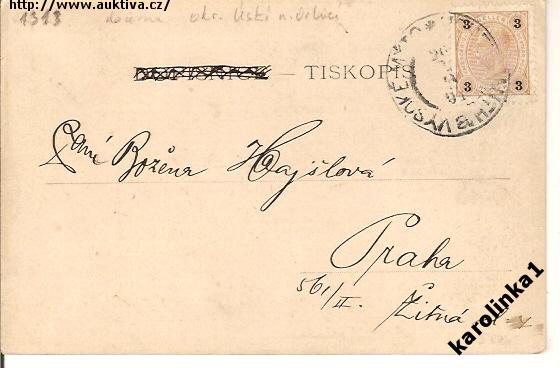 http://www.auktiva.cz/
1313 okr. Ústí n. Orlicí
DOPISNICE – TISKOPIS
3 3
3 3
VYSOKÉ MÝTO
Paní Božena Hajšlová
Praha
561/II.
Žitná
karolinka1